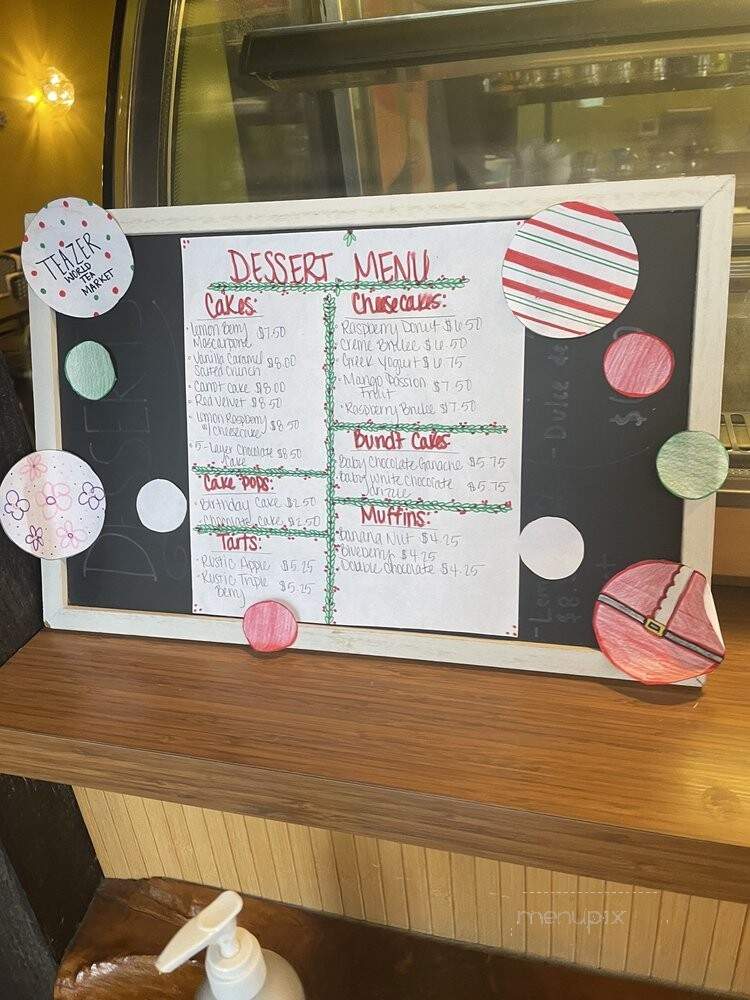 TEAZER
WORLD
TEA
MARKET
DESSERT MENU
Cakes:
• Lemon Berry $7.50
Mascarpone
• Vanilla Caramel $8.00
Salted Crunch
• Carrot Cake $8.00
• Red Velvet $8.50
• Lemon Raspberry $8.50
w/cheesecake
• 5-Layer Chocolate $8.50
Cake
Cake Pops:
• Birthday Cake $2.50
• Chocolate Cake $2.50
Tarts:
• Rustic Apple $5.25
• Rustic Triple $5.25
Berry
Cheesecakes:
• Raspberry Donut $6.50
• Creme Brulee $6.50
• Greek Yogurt $6.75
• Mango Passion $7.50
Fruit
• Raspberry Brulee $7.50
Bundt Cakes
Baby Chocolate Ganache $5.75
Baby White Chocolate $5.75
Muffins:
Banana Nut $4.25
Blueberry $4.25
Double Chocolate $4.25
DESSERTS
- Dulce de
menupix